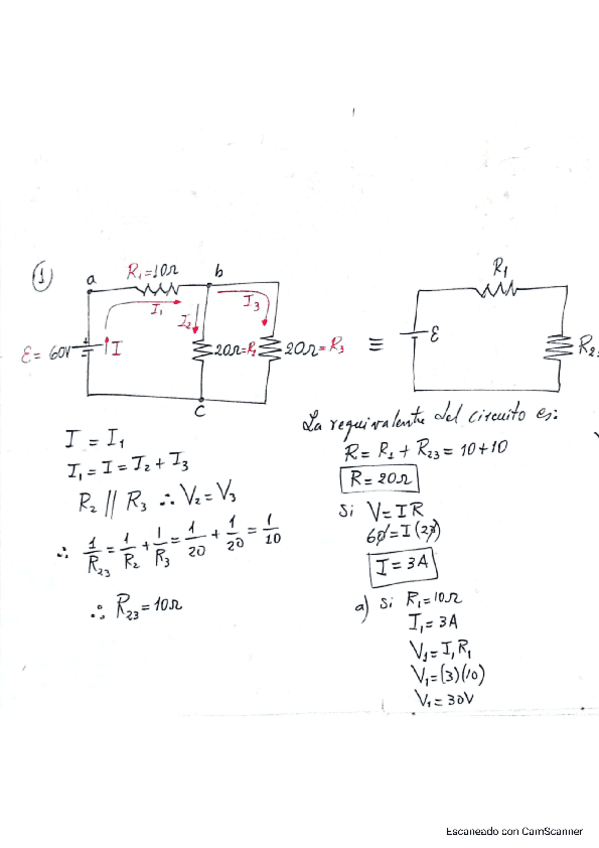 ①
a
R₁=10Ω
b
I₁
I₂
I₃
Ɛ= 60V
I
20Ω=R₂
20Ω=R₃
c
≡
R₁
Ɛ
R₂
I = I₁
I₁ = I = I₂ + I₃
R₂ // R₃ ∴ V₂ = V₃
∴ 1/R₂₃ = 1/R₂ + 1/R₃ = 1/20 + 1/20 = 1/10
∴ R₂₃ = 10Ω
La requivalente del circuito es:
R = R₁ + R₂₃ = 10+10
R = 20Ω
Si V = I R
60 = I (20)
I = 3A
a) Si R₁ = 10Ω
I₁ = 3A
V₁ = I₁R₁
V₁ = (3)(10)
V₁ = 30V
Escaneado con CamScanner